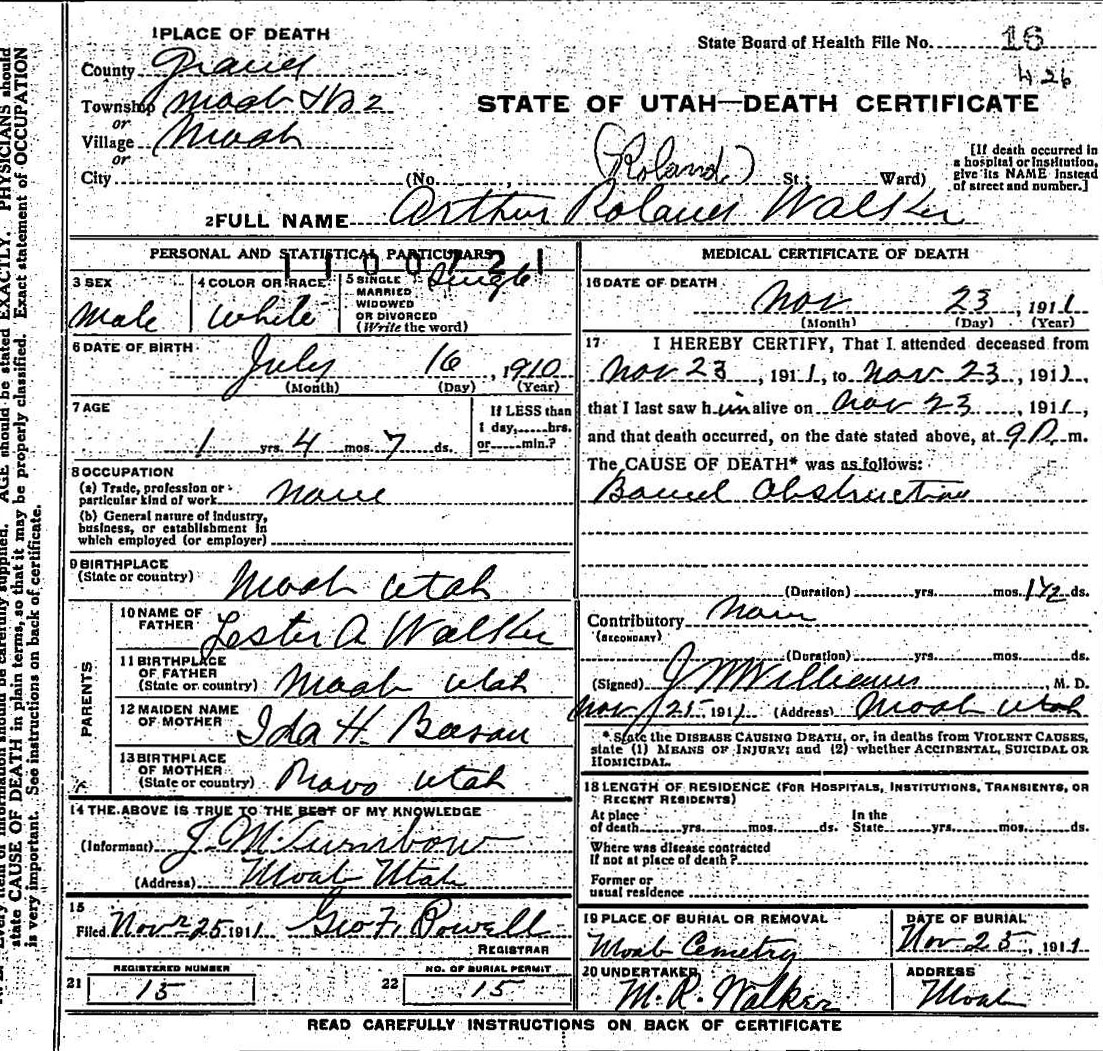 1 PLACE OF DEATH
State Board of Health File No. 16
County Grand
426
Township Moab No 2
STATE OF UTAH—DEATH CERTIFICATE
or
Village Moab
or
City (No. St.; Ward)
(Roland)
[If death occurred in
a hospital or institution,
give its NAME instead
of street and number.]
2 FULL NAME Arthur Roland Walker
PERSONAL AND STATISTICAL PARTICULARS
1100721
3 SEX
Male
4 COLOR OR RACE
White
5 SINGLE
MARRIED
WIDOWED
OR DIVORCED
(Write the word)
Single
6 DATE OF BIRTH
July 16, 1910
(Month) (Day) (Year)
7 AGE
If LESS than
1 day, hrs.
or min.?
1 yrs. 4 mos. 7 ds.
8 OCCUPATION
(a) Trade, profession or
particular kind of work none
(b) General nature of industry,
business, or establishment in
which employed (or employer)
9 BIRTHPLACE
(State or country) Moab Utah
PARENTS
10 NAME OF
FATHER Lester A Walker
11 BIRTHPLACE
OF FATHER
(State or country) Moab Utah
12 MAIDEN NAME
OF MOTHER Ida H.
13 BIRTHPLACE
OF MOTHER
(State or country) Provo Utah
14 THE ABOVE IS TRUE TO THE BEST OF MY KNOWLEDGE
(Informant) J. M. Turnbow
(Address) Moab Utah
15
Filed Nov 25 1911 Geo F. Powell
REGISTRAR
21 REGISTERED NUMBER
15
22 NO. OF BURIAL PERMIT
15
MEDICAL CERTIFICATE OF DEATH
16 DATE OF DEATH
Nov 23, 1911
(Month) (Day) (Year)
17 I HEREBY CERTIFY, That I attended deceased from
Nov 23, 1911, to Nov 23, 1911,
that I last saw him alive on Nov 23, 1911,
and that death occurred, on the date stated above, at 9 P. m.
The CAUSE OF DEATH* was as follows:
Bowel Obstruction
(Duration) yrs. mos. 1 1/2 ds.
Contributory None
(SECONDARY)
(Duration) yrs. mos. ds.
(Signed) J W Williams M. D.
Nov 25 1911 (Address) Moab Utah
*State the DISEASE CAUSING DEATH, or, in deaths from VIOLENT CAUSES,
state (1) MEANS OF INJURY; and (2) whether ACCIDENTAL, SUICIDAL OR
HOMICIDAL.
18 LENGTH OF RESIDENCE (FOR HOSPITALS, INSTITUTIONS, TRANSIENTS, OR
RECENT RESIDENTS)
At place
of death yrs. mos. ds.
In the
State yrs. mos. ds.
Where was disease contracted
if not at place of death?
Former or
usual residence
19 PLACE OF BURIAL OR REMOVAL
Moab Cemetry
DATE OF BURIAL
Nov 25, 1911
20 UNDERTAKER
M. R. Walker
ADDRESS
Moab
READ CAREFULLY INSTRUCTIONS ON BACK OF CERTIFICATE
information should be carefully supplied. AGE should be stated EXACTLY. PHYSICIANS should
state CAUSE OF DEATH in plain terms, so that it may be properly classified. Exact statement of OCCUPATION
is very important. See instructions on back of certificate.